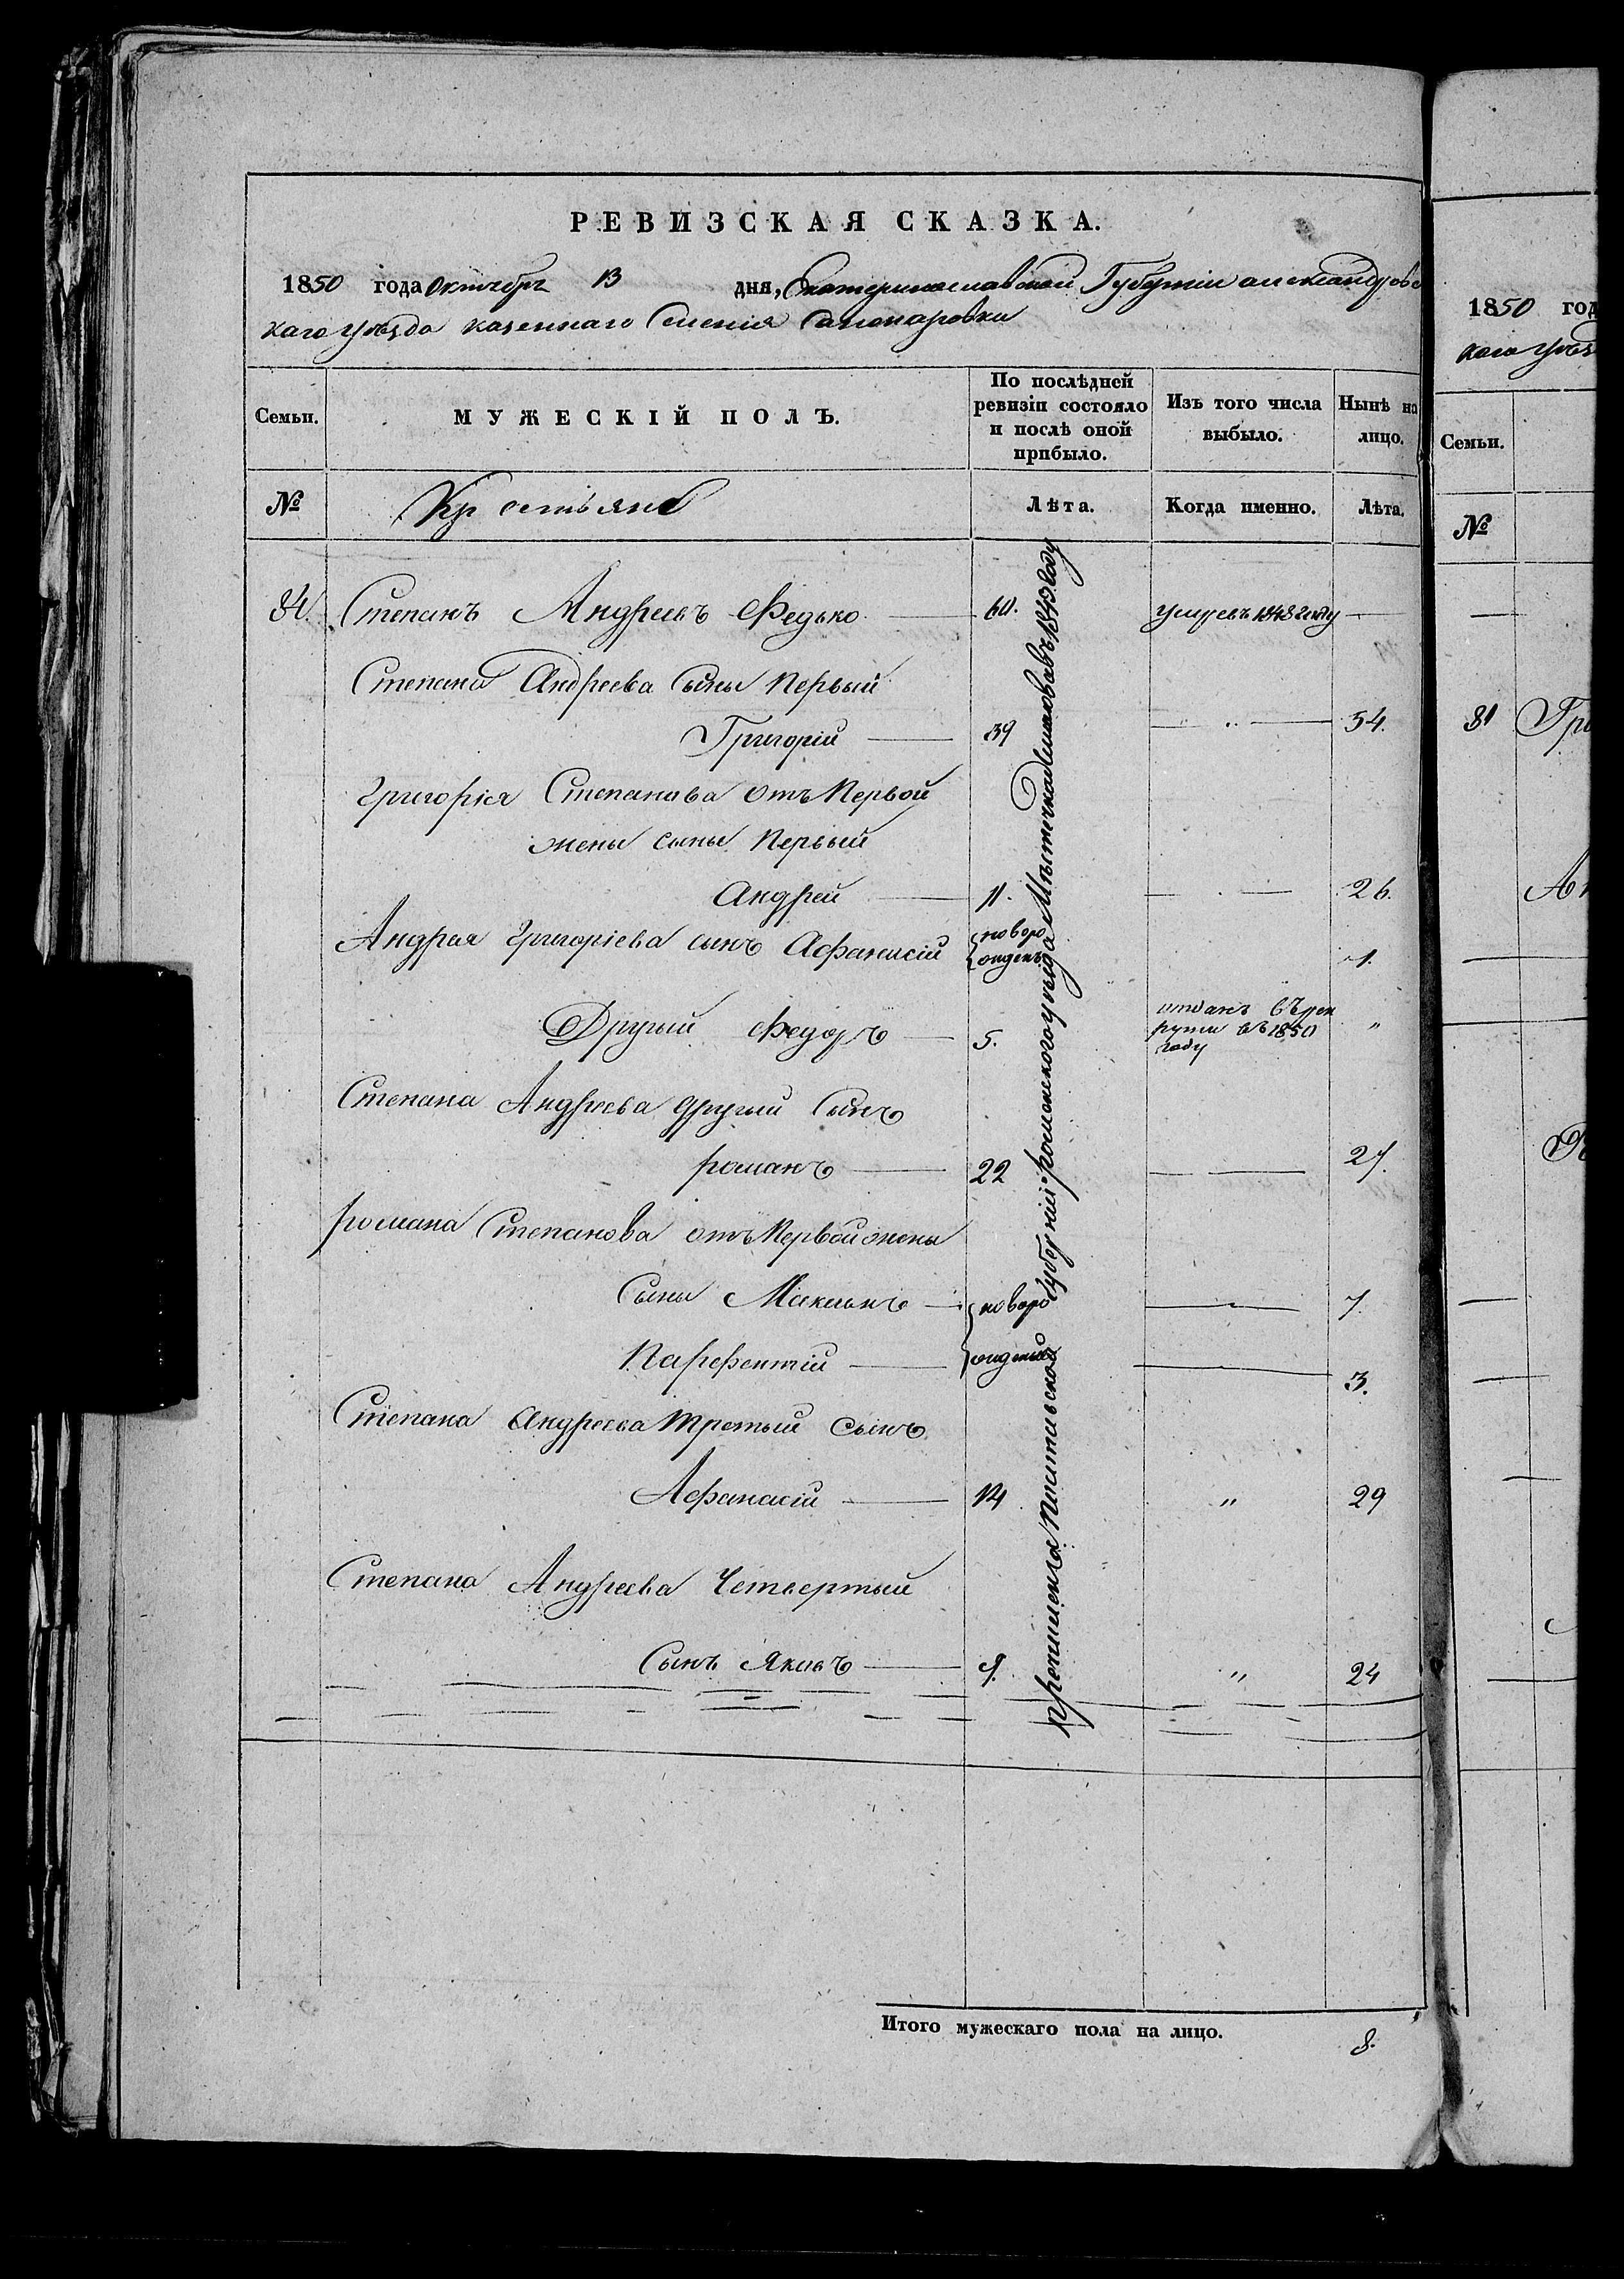 РЕВИЗСКАЯ СКАЗКА.
1850 года Октября 13 дня, Екатеринославской Губернии александровс
каго уезда казеннаго Селения
Семьи.
МУЖЕСКІЙ ПОЛЪ.
По послѣдней ревизіи состояло и послѣ оной прибыло.
Изъ того числа выбыло.
Нынѣ на лицо.
№
Крестьяне
Лѣта.
Когда именно.
Лѣта.
84. Степанъ Андреевъ Федько 60. умеръ въ 1848 году
Степана Андреева Сыны Первый
Григорій 39 54.
Григорія Степанова отъ Первой
жены сыны Первый
Андрей 11. 26.
Андрея Григоріева сынъ Афанасій новоро
жденъ 1.
Другий Федоръ 5. отданъ въ рек
руты въ 1850
году "
Степана Андреева другий Сынъ
романъ 22 27.
романа Степанова отъ Первой жены
Сыны новоро 7.
Парфентій жденые 3.
Степана Андреева Третый Сынъ
Афанасій 14 " 29
Степана Андреева Четвертый
Сынъ Яковъ 9. " 24
Полтавской Губернии роменского уезда Местечка въ 1843 году
Итого мужескаго пола на лицо. 8.
1850 год
каго уезд
Семьи.
№
81 Гри
Ан